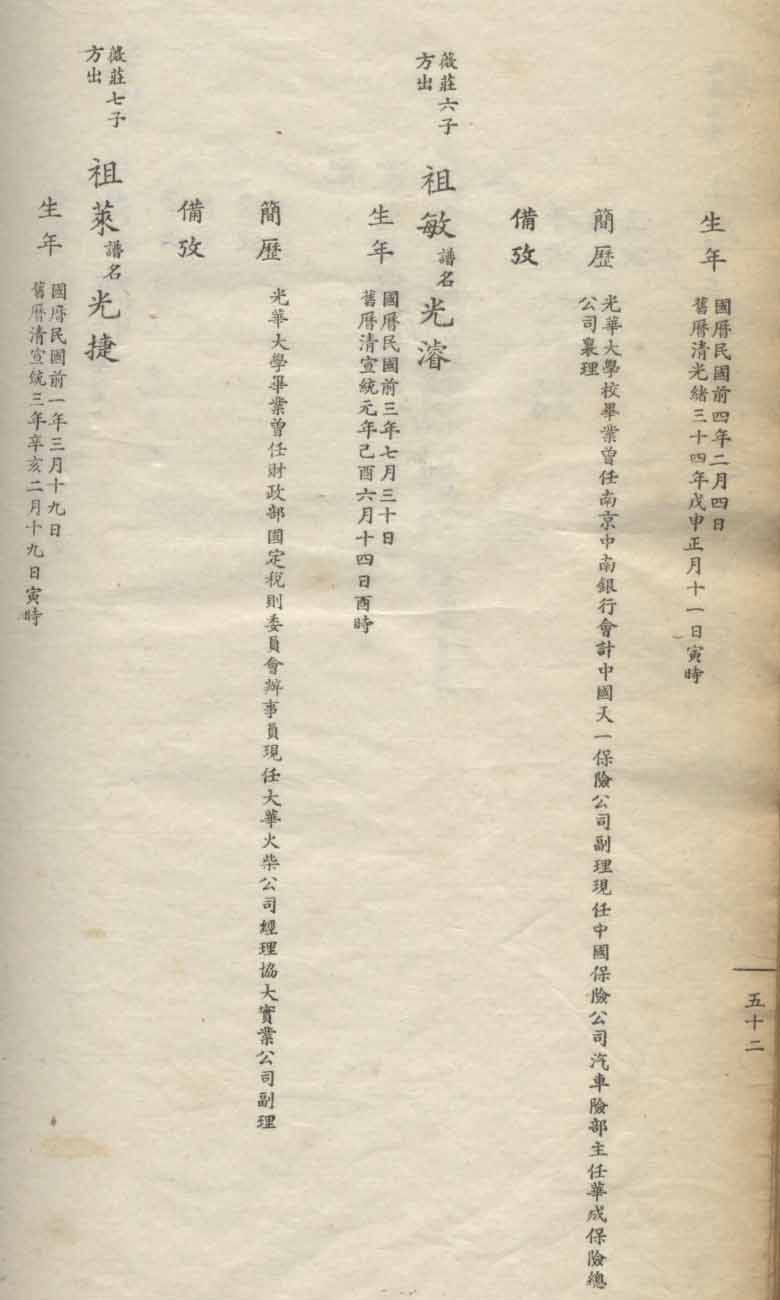 五十二
生年
國曆民國前四年二月四日
舊曆清光緒三十四年戊申正月十一日寅時
簡歷
光華大學校畢業曾任南京中南銀行會計中國天一保險公司副理現任中國保險公司汽車險部主任華成保險總
公司襄理
備攷
薇莊六子
方出
祖敏譜名光濬
生年
國曆民國前三年七月三十日
舊曆清宣統元年己酉六月十四日酉時
簡歷
光華大學畢業曾任財政部國定稅則委員會辦事員現任大華火柴公司經理協大實業公司副理
備攷
薇莊七子
方出
祖萊譜名光捷
生年
國曆民國前一年三月十九日
舊曆清宣統三年辛亥二月十九日寅時